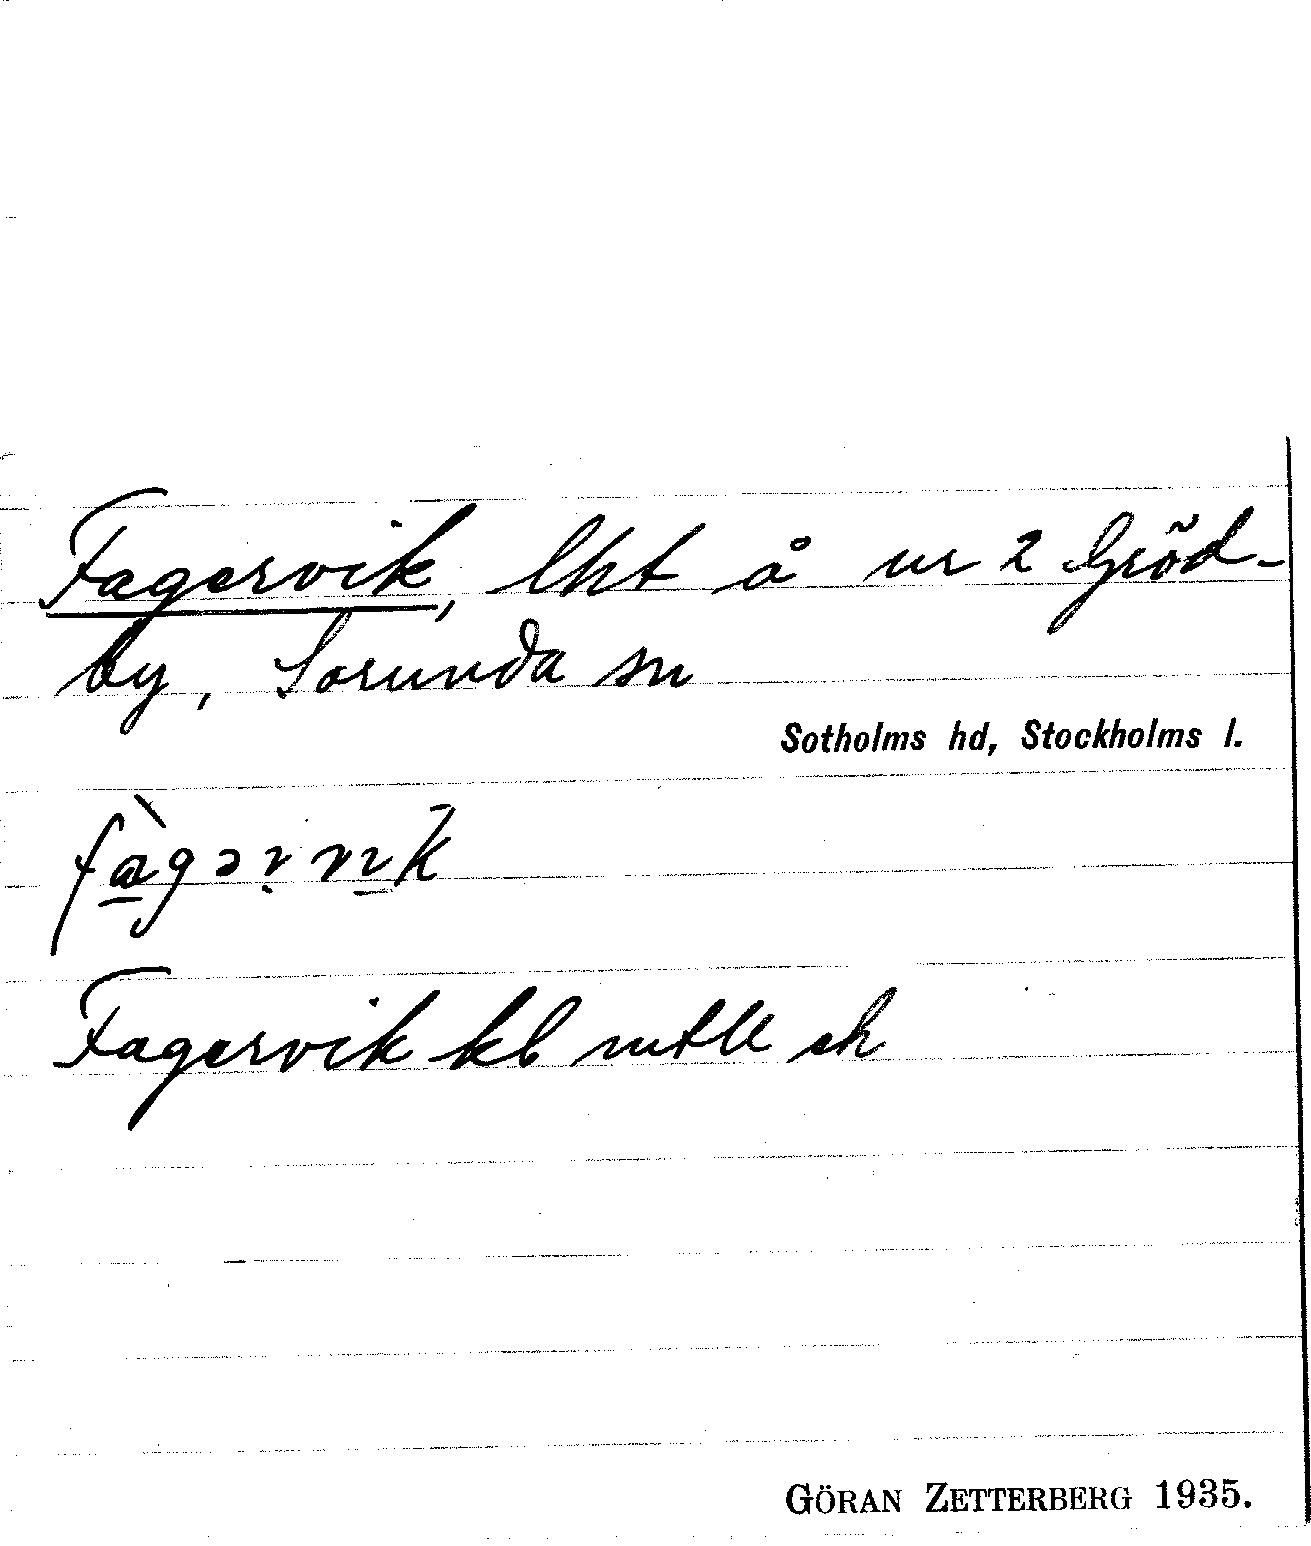 Fagervik, lht å nr 2 Gröd-
by, Sorunda sn
Sotholms hd, Stockholms l.
fàgər vik
Fagervik kb mtll ek
GÖRAN ZETTERBERG 1935.